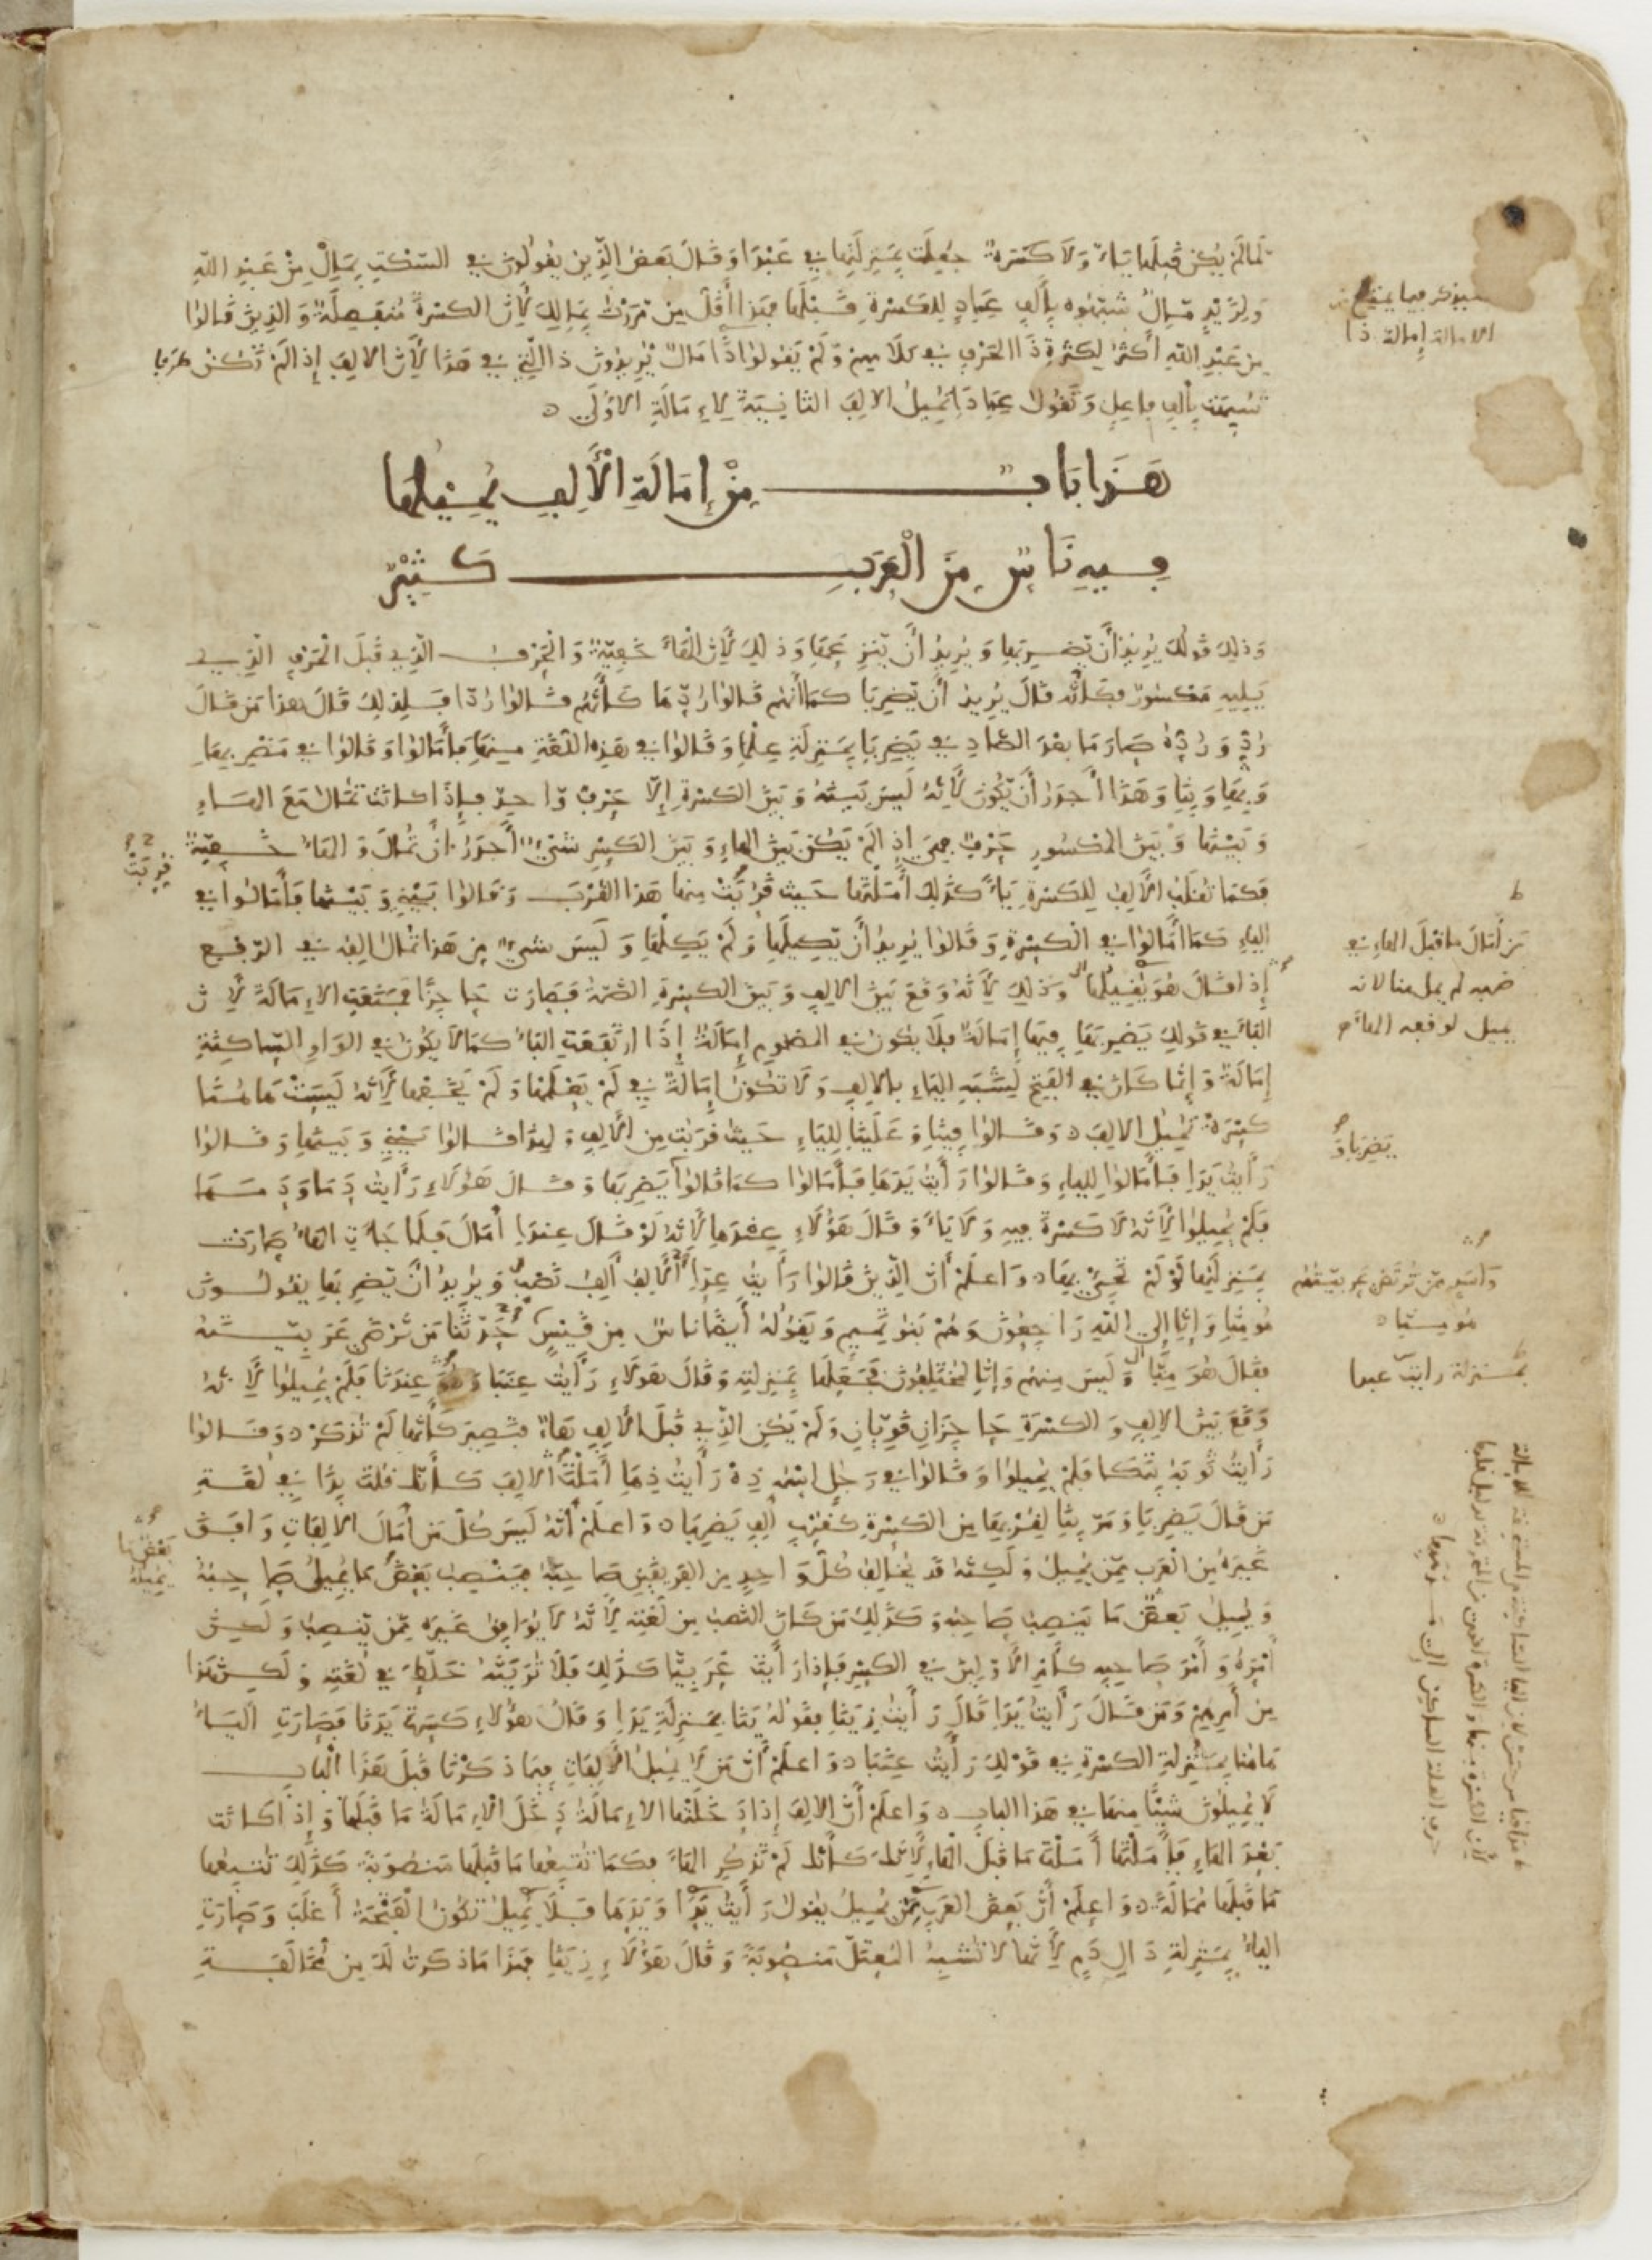 لَمَا لَمْ يَكُنْ قَبْلَهَا يَاءٌ وَلَا كَسْرَةٌ جُعِلَتْ بِمَنْزِلَتِهَا فِي عَبْدَا وَقَالَ بَعْضُ الَّذِينَ يَقُولُونَ فِي السَّكْتِ بِمَالْ مِنْ عَبْدِ اللَّهِ
وَلِزَيْدٍ مَالٌ شَبَّهُوهُ بِأَلِفِ عِمَادٍ لِلْكَسْرَةِ قَبْلَهَا فَهَذَا أَقَلُّ مِنْ مَرَرْتُ بِمَالِكَ لِأَنَّ الْكَسْرَةَ مُنْفَصِلَةٌ وَالَّذِينَ قَالُوا
مِنْ عَبْدِ اللَّهِ أَكْثَرُ لِكَثْرَةِ ذَا الْحَرْفِ فِي كَلَامِهِمْ وَلَمْ يَقُولُوا ذَا مَالٌ يُرِيدُونَ ذَا الَّتِي فِي هَذَا لِأَنَّ الْأَلِفَ إِذَا لَمْ تَكُنْ طَرَفًا
شُبِّهَتْ بِأَلِفِ فَاعِلٍ وَتَقُولُ عِمَادَا تُمِيلُ الْأَلِفَ الثَّانِيَةَ لِإِمَالَةِ الْأُولَى ه
هَذَا بَابٌ مِنْ إِمَالَةِ الْأَلِفِ يُمِيلُهَا
فِيهِ نَاسٌ مِنَ الْعَرَبِ كَثِيرٌ
وَذَلِكَ قَوْلُكَ يُرِيدُ أَنْ يَضْرِبَهَا وَيُرِيدُ أَنْ يَنْزِعَهَا وَذَلِكَ لِأَنَّ الْهَاءَ خَفِيَّةٌ وَالْحَرْفُ الَّذِي قَبْلَ الْحَرْفِ الَّذِي
يَلِيهِ مَكْسُورٌ فَكَأَنَّهُ قَالَ يُرِيدُ أَنْ يَضْرِبَا كَمَا أَنَّهُمْ قَالُوا رُدَّهَا كَأَنَّهُمْ قَالُوا رُدَّا فَلِذَلِكَ قَالَ هَذَا مَنْ قَالَ
رُدِّ وَرُدُّهُ صَارَ مَا بَعْدَ الضَّادِ فِي يَضْرِبَا بِمَنْزِلَةِ عِلْمَا وَقَالُوا فِي هَذِهِ اللُّغَةِ مِنْهَا فَأَمَالُوا وَقَالُوا فِي مَضْرِبِهَا
وَبِهَا وَبِنَا وَهَذَا أَجْدَرُ أَنْ يَكُونَ لِأَنَّهُ لَيْسَ بَيْنَهُ وَبَيْنَ الْكَسْرَةِ إِلَّا حَرْفٌ وَاحِدٌ فَإِذَا كَانَتْ تُمَالُ مَعَ الْهَاءِ
وَبَيْنَهَا وَبَيْنَ الْمَكْسُورِ حَرْفٌ فَهِيَ إِذَا لَمْ يَكُنْ بَيْنَ الْهَاءِ وَبَيْنَ الْكَسْرِ شَيْءٌ أَجْدَرُ أَنْ تُمَالَ وَالْهَاءُ خَفِيَّةٌ
فَكَمَا تُقْلَبُ الْأَلِفُ لِلْكَسْرَةِ يَاءً كَذَلِكَ أَمَلْتَهَا حَيْثُ قَرُبَتْ مِنْهَا هَذَا الْقُرْبَ وَقَالُوا بَيْنِي وَبَيْنَهَا فَأَمَالُوا فِي
الْيَاءِ كَمَا أَمَالُوا فِي الْكَسْرَةِ وَقَالُوا يُرِيدُ أَنْ يَكِيلَهَا وَلَمْ يَكِلْهَا وَلَيْسَ شَيْءٌ مِنْ هَذَا تُمَالُ أَلِفُهُ فِي الرَّفْعِ
إِذَا قَالَ هُوَ يَكِيلُهَا وَذَلِكَ لِأَنَّهُ وَقَعَ بَيْنَ الْأَلِفِ وَبَيْنَ الْكَسْرَةِ الضَّمَّةُ فَصَارَتْ حَاجِزًا فَمَنَعَتِ الْإِمَالَةَ لِأَنَّ
الْبَاءَ فِي قَوْلِكَ يَضْرِبَهَا فِيهَا إِمَالَةٌ فَلَا يَكُونُ فِي الْمَضْمُومِ إِمَالَةٌ إِذَا ارْتَفَعَتِ الْبَاءُ كَمَا لَا يَكُونُ فِي الْوَاوِ السَّاكِنَةِ
إِمَالَةٌ وَإِنَّمَا كَانَ فِي الْفَتْحِ لِشَبَهِ الْيَاءِ بِالْأَلِفِ وَلَا تَكُونُ إِمَالَةٌ فِي لَمْ يَعْلَمْهَا وَلَمْ يَخَفْهَا لِأَنَّهُ لَيْسَتْ هَاهُنَا
كَسْرَةٌ تُمِيلُ الْأَلِفَ ه وَقَالُوا فِينَا وَعَلَيْنَا لِلْيَاءِ حَيْثُ قَرُبَتْ مِنَ الْأَلِفِ وَلِهَذَا قَالُوا بَيْنِي وَبَيْنَهَا وَقَالُوا
رَأَيْتُ يَدَا فَأَمَالُوا لِلْيَاءِ وَقَالُوا رَأَيْتُ يَدَهَا فَأَمَالُوا كَمَا قَالُوا يَضْرِبَهَا وَقَالَ هَؤُلَاءِ رَأَيْتُ دَمَا وَدَمَهَا
فَلَمْ يُمِيلُوا لِأَنَّهُ لَا كَسْرَةَ فِيهِ وَلَا يَاءَ وَقَالَ هَؤُلَاءِ عِنْدَهَا لِأَنَّهُ لَوْ قَالَ عِنْدَا أَمَالَ فَلَمَّا جَاءَتِ الْهَاءُ صَارَتْ
بِمَنْزِلَتِهَا لَوْ لَمْ تَجِئْ بِهَا ه وَاعْلَمْ أَنَّ الَّذِينَ قَالُوا رَأَيْتُ عِدَا الْأَلِفُ أَلِفُ نَصْبٍ وَيُرِيدُ أَنْ يَضْرِبَهَا يَقُولُونَ
هُوَ مِنَّا وَإِنَّا إِلَى اللَّهِ رَاجِعُونَ وَهُمْ بَنُو تَمِيمٍ وَيَقُولُهُ أَيْضًا نَاسٌ مِنْ قَيْسٍ حَدَّثَنَا مَنْ نَرْضَى عَرَبِيَّتَهُ
فَقَالَ هُوَ مِنَّا وَلَيْسَ مِنْهُمْ وَإِنَّا لَمُخْتَلِفُونَ فَجَعَلَهَا بِمَنْزِلَتِهِ وَقَالَ هَؤُلَاءِ رَأَيْتُ عِنَبَا وَهُوَ عِنْدَنَا فَلَمْ يُمِيلُوا لِأَنَّهُ
وَقَعَ بَيْنَ الْأَلِفِ وَالْكَسْرَةِ حَاجِزَانِ قَوِيَّانِ وَلَمْ يَكُنِ الَّذِي قَبْلَ الْأَلِفِ هَاءً فَتَصِيرَ كَأَنَّهَا لَمْ تُذْكَرْ ه وَقَالُوا
رَأَيْتُ ثَوْبَهُ بِتَكَا فَلَمْ يُمِيلُوا وَقَالُوا فِي رَجُلٍ اسْمُهُ ذِهْ رَأَيْتُ ذِهَا أَمَلْتَ الْأَلِفَ كَأَنَّكَ قُلْتَ يَدَا فِي لُغَةِ
مَنْ قَالَ يَضْرِبَا وَمَرَّ بِنَا لِقُرْبِهَا مِنَ الْكَسْرَةِ كَقُرْبِ أَلِفِ يَضْرِبَا ه وَاعْلَمْ أَنَّهُ لَيْسَ كُلُّ مَنْ أَمَالَ الْأَلِفَاتِ وَافَقَ
غَيْرَهُ مِنَ الْعَرَبِ مِمَّنْ يُمِيلُ وَلَكِنَّهُ قَدْ يُخَالِفُ كُلُّ وَاحِدٍ مِنَ الْفَرِيقَيْنِ صَاحِبَهُ فَيَنْصِبُ بَعْضٌ مَا يُمِيلُ صَاحِبُهُ
وَيُمِيلُ بَعْضٌ مَا يَنْصِبُ صَاحِبُهُ وَكَذَلِكَ مَنْ كَانَ النَّصْبُ مِنْ لُغَتِهِ لِأَنَّهُ لَا يُوَافِقُ غَيْرَهُ مِمَّنْ يَنْصِبُ وَلَكِنَّ
أَمْرَهُ وَأَمْرَ صَاحِبِهِ كَأَمْرِ الْأَوَّلِينَ فِي الْكَسْرِ فَإِذَا رَأَيْتَ عَرَبِيًّا كَذَلِكَ فَلَا تُرَيَنَّهُ خَلَّطَ فِي لُغَتِهِ وَلَكِنَّ هَذَا
مِنْ أَمْرِهِمْ وَمَنْ قَالَ رَأَيْتُ يَدَا قَالَ رَأَيْتُ زِيَنَا فَقَوْلُهُ يَنَا بِمَنْزِلَةِ يَدَا وَقَالَ هَؤُلَاءِ كَسَرْتَ يَدَنَا فَصَارَتِ الْيَاءُ
هَاهُنَا بِمَنْزِلَةِ الْكَسْرَةِ فِي قَوْلِكَ رَأَيْتُ عِنَبَا ه وَاعْلَمْ أَنَّ مَنْ لَا يُمِيلُ الْأَلِفَاتِ فِيمَا ذَكَرْنَا قَبْلَ هَذَا الْبَابِ
لَا يُمِيلُونَ شَيْئًا مِنْهَا فِي هَذَا الْبَابِ ه وَاعْلَمْ أَنَّ الْأَلِفَ إِذَا دَخَلَتْهَا الْإِمَالَةُ دَخَلَ الْإِمَالَةُ مَا قَبْلَهَا وَإِذَا كَانَتْ
بَعْدَ الْهَاءِ فَأَمَلْتَهَا أَمَلْتَ مَا قَبْلَ الْهَاءِ لِأَنَّكَ كَأَنَّكَ لَمْ تَذْكُرِ الْهَاءَ فَكَمَا تُتْبِعُهَا مَا قَبْلَهَا مَنْصُوبَةً كَذَلِكَ تُتْبِعُهَا
مَا قَبْلَهَا مُمَالَةً ه وَاعْلَمْ أَنَّ بَعْضَ الْعَرَبِ مِمَّنْ يُمِيلُ يَقُولُ رَأَيْتُ يَدَا وَيَدَهَا فَلَا يُمِيلُ تَكُونُ الْفَتْحَةُ أَغْلَبَ وَصَارَتِ
الْيَاءُ بِمَنْزِلَةِ دَالِ دَمٍ لِأَنَّهَا لَا تُشْبِهُ الْمُعْتَلَّ مَنْصُوبَةً وَقَالَ هَؤُلَاءِ زِيَنَا فَهَذَا مَا ذَكَرْتُ لَكَ مِنْ مُخَالَفَةِ
سيذكر فيما يمتنع من
الامالة إمالة ذا
قَرِبَتْ
ط
مَن أَمَالَ ما قبل الهاء في
لم يمل هنا لانه
يميل لو فعه الهاء
يَضْرِبَا وَ
بمنزلة رايت عبدا
بَعْضُ مَا
يُمِيلُهُ